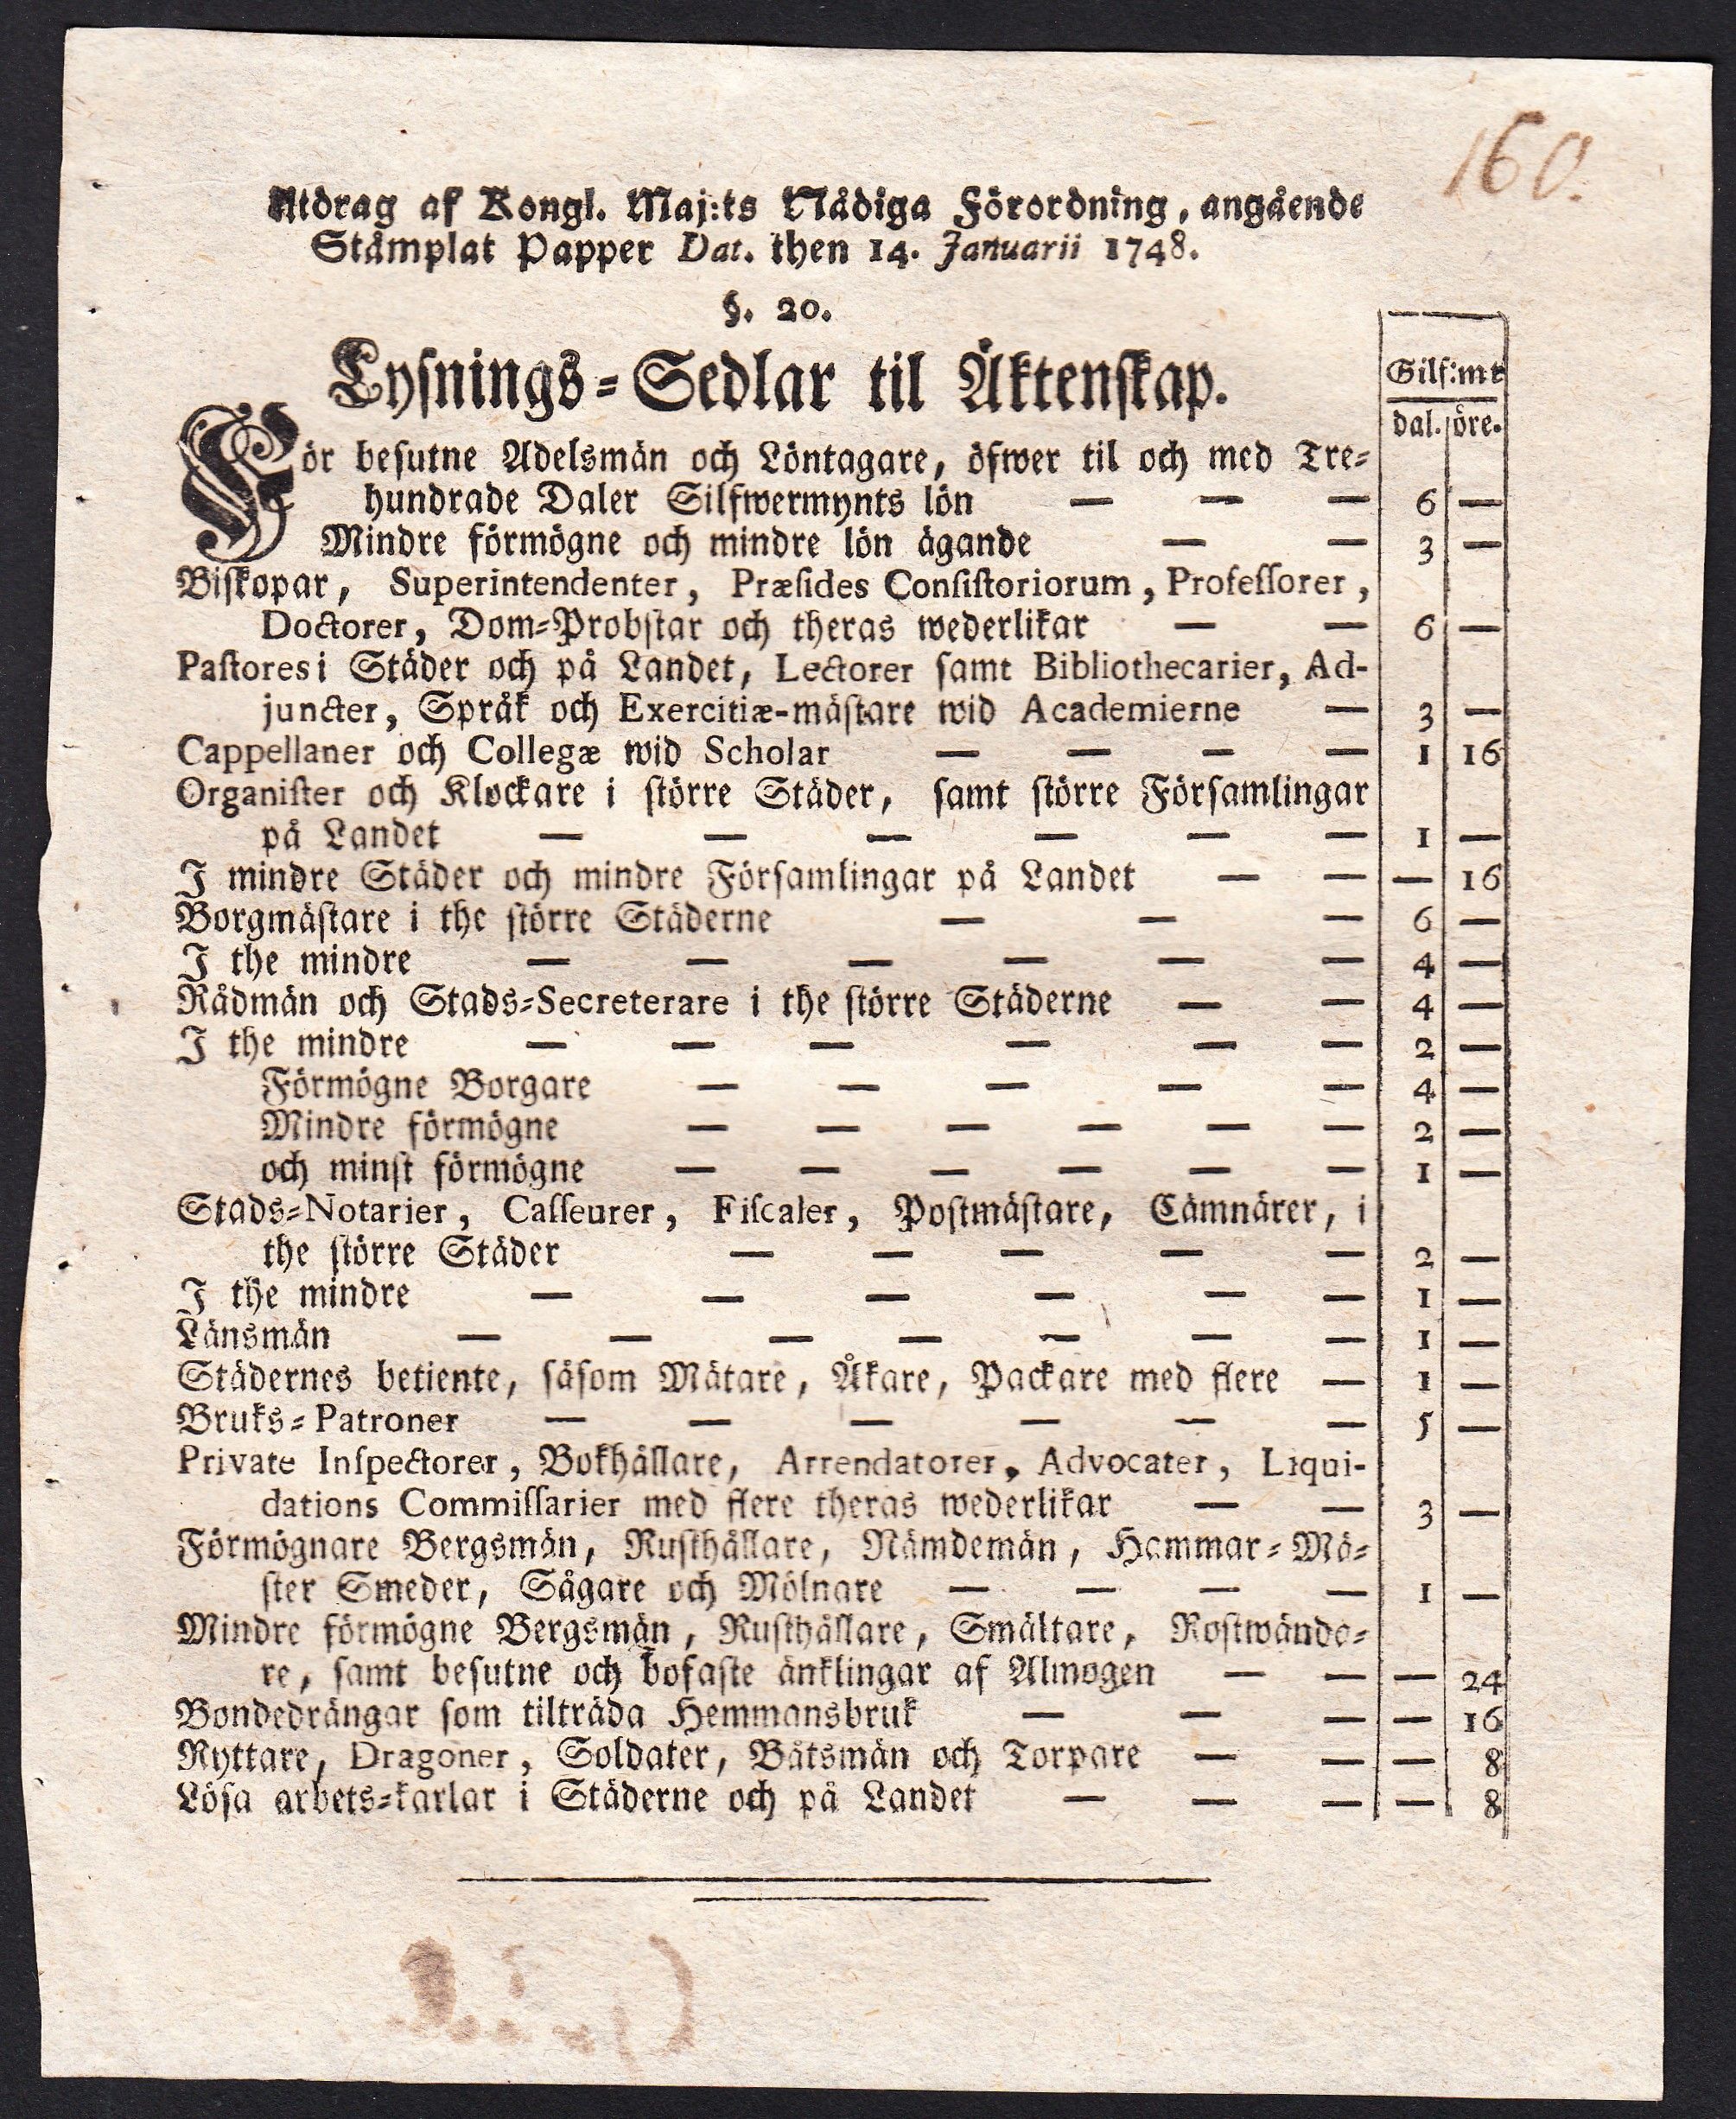 160.
Utdrag af Kongl. Maj:ts Nådiga Förordning, angående
Stämplat Papper Dat. then 14. Januarii 1748.
§. 20.
Lysnings-Sedlar til Äktenskap.
Silf:mt
dal. öre.
För besutne Adelsmän och Löntagare, öfwer til och med Tre-
hundrade Daler Silfwermynts lön — — — 6 —
Mindre förmögne och mindre lön ägande — — 3 —
Biskopar, Superintendenter, Præsides Consistoriorum, Professorer,
Doctorer, Dom-Probstar och theras wederlikar — — 6 —
Pastores i Städer och på Landet, Lectorer samt Bibliothecarier, Ad-
juncter, Språk och Exercitiæ-mästare wid Academierne — 3 —
Cappellaner och Collegæ wid Scholar — — — — 1 16
Organister och Klockare i större Städer, samt större Församlingar
på Landet — — — — — — 1 —
I mindre Städer och mindre Församlingar på Landet — — — 16
Borgmästare i the större Städerne — — — 6 —
I the mindre — — — — — — 4 —
Rådmän och Stads-Secreterare i the större Städerne — — 4 —
I the mindre — — — — — — 2 —
Förmögne Borgare — — — — — 4 —
Mindre förmögne — — — — — — 2 —
och minst förmögne — — — — — — 1 —
Stads-Notarier, Casseurer, Fiscaler, Postmästare, Cämnärer, i
the större Städer — — — — — 2 —
I the mindre — — — — — — 1 —
Länsmän — — — — — — — 1 —
Städernes betiente, såsom Mätare, Åkare, Packare med flere — 1 —
Bruks-Patroner — — — — — — 5 —
Private Inspectorer, Bokhållare, Arrendatorer, Advocater, Liqui-
dations Commissarier med flere theras wederlikar — — 3 —
Förmögnare Bergsmän, Rusthållare, Nämdemän, Hammar-Mä-
ster Smeder, Sågare och Mölnare — — — — 1 —
Mindre förmögne Bergsmän, Rusthållare, Smältare, Rostwända-
re, samt besutne och bofaste änklingar af Almogen — — — 24
Bondedrängar som tilträda Hemmansbruk — — — — 16
Ryttare, Dragoner, Soldater, Båtsmän och Torpare — — — 8
Lösa arbets-karlar i Städerne och på Landet — — — — 8